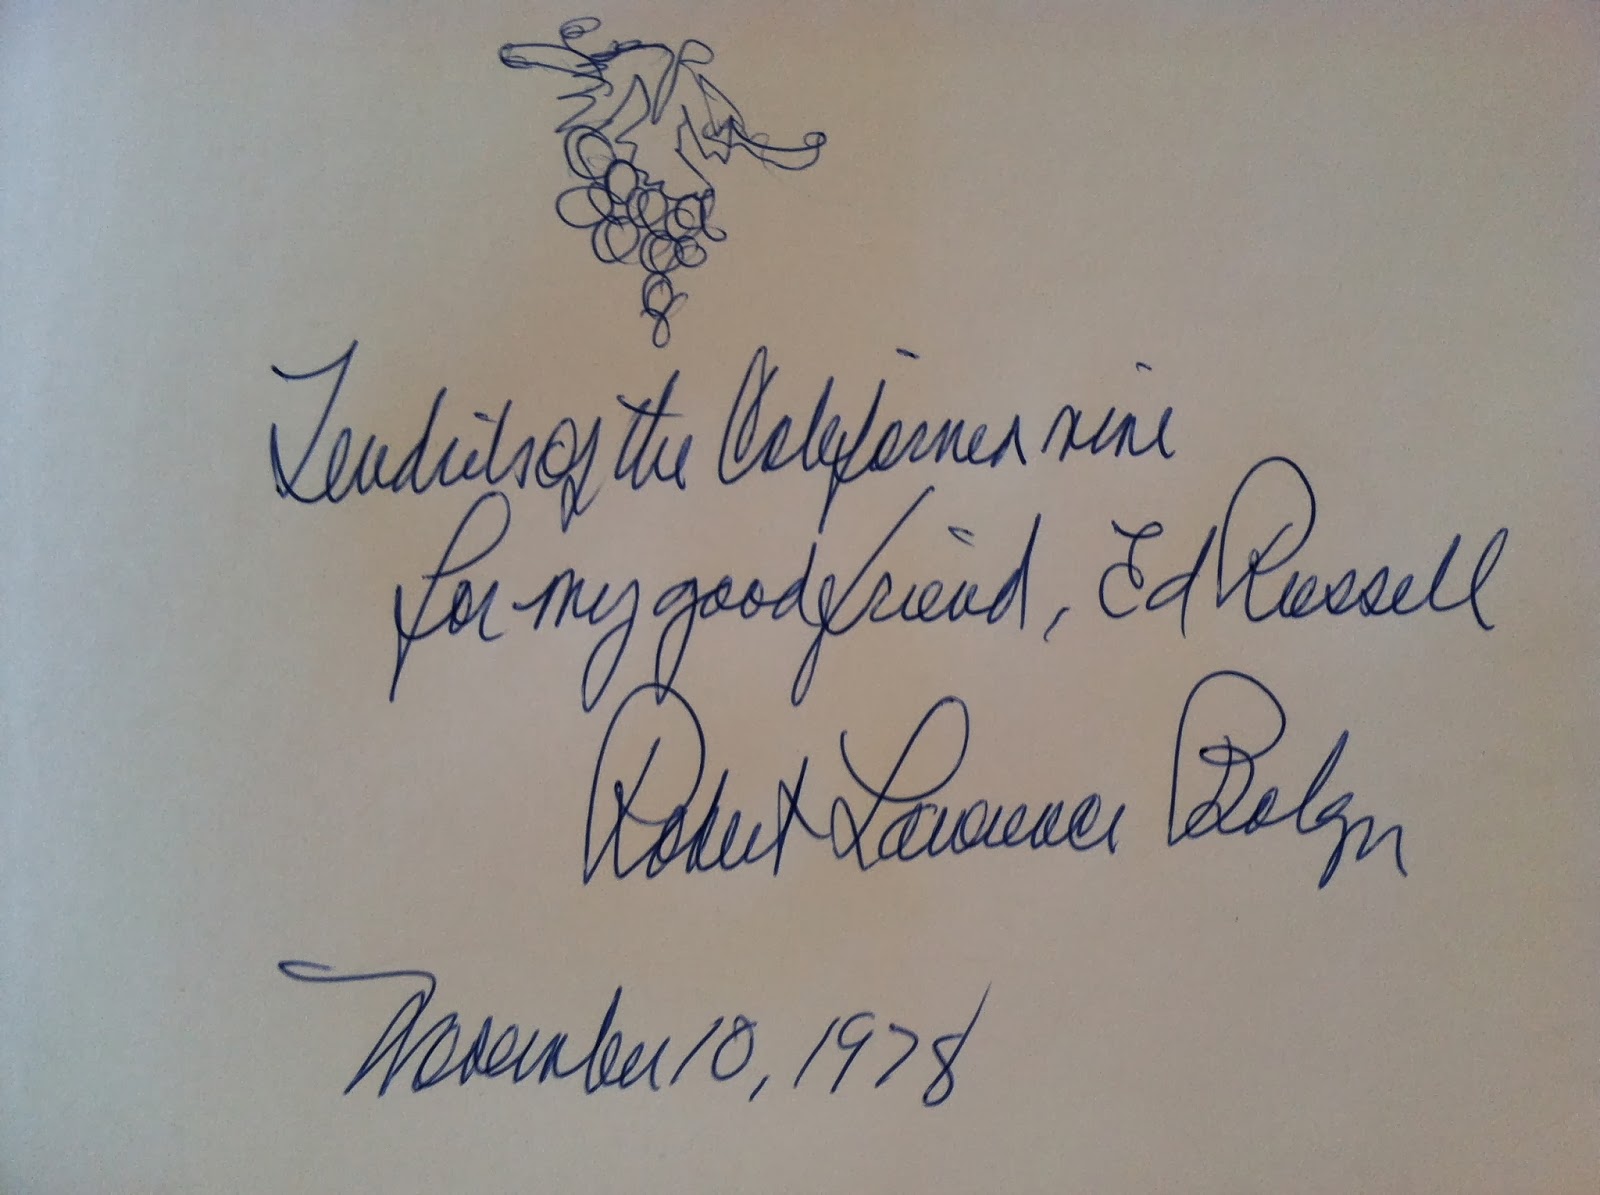 Tendrils of the California vine
for my good friend, Ed Russell
Robert Lawrence Balzer
November 10, 1978